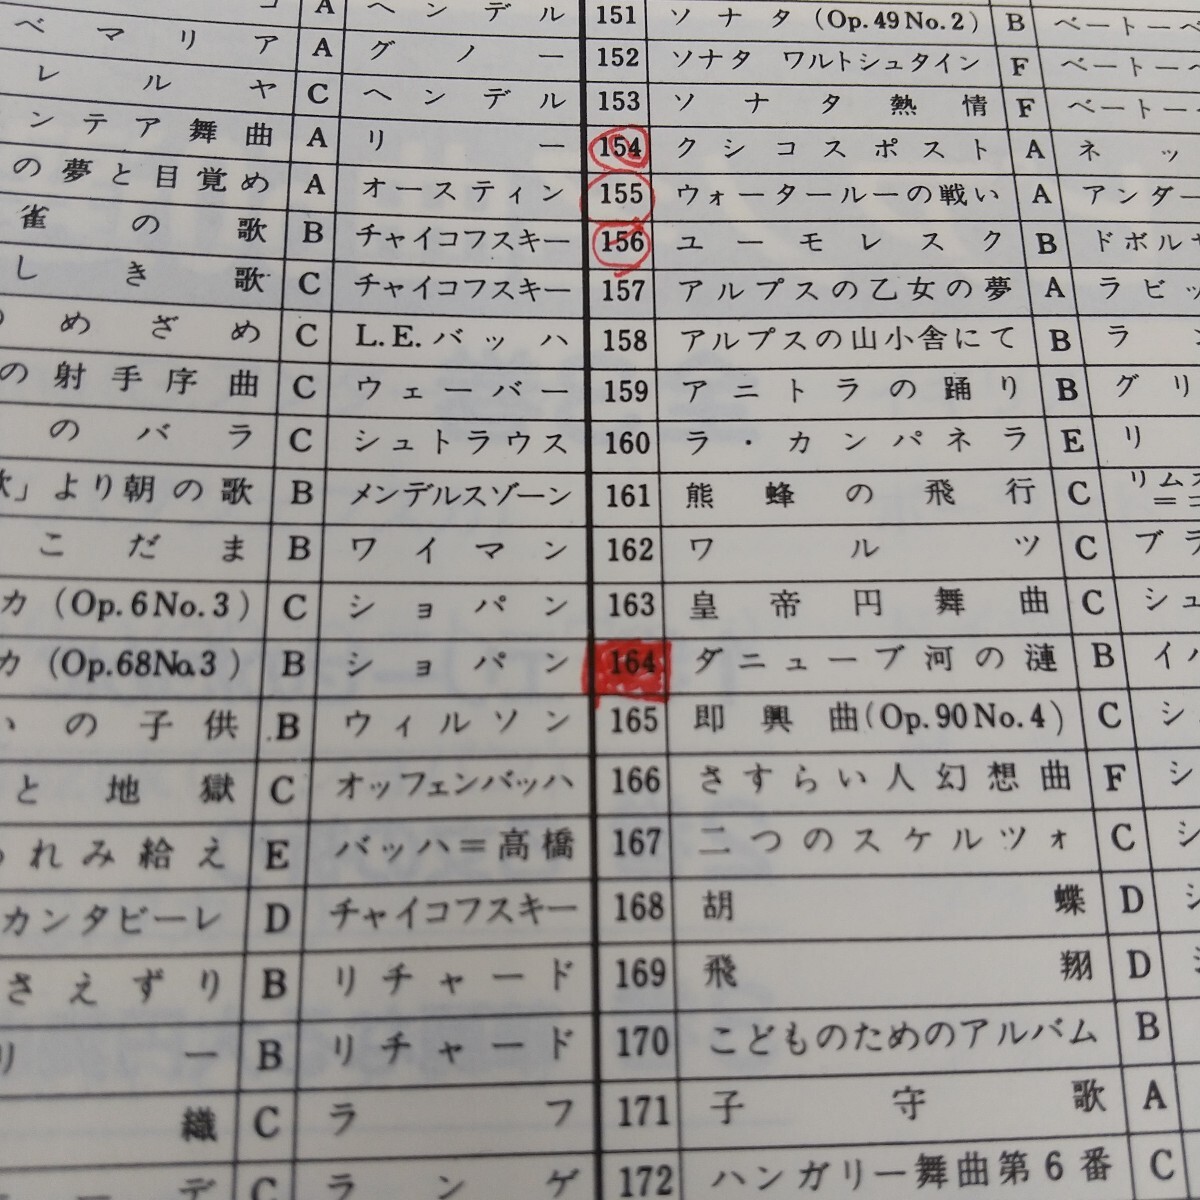 コ A ヘンデル
ベマリア A グノー
レルヤ C ヘンデル
ンテア舞曲 A リー
の夢と目覚め A オースティン
雀の歌 B チャイコフスキー
しき歌 C チャイコフスキー
めざめ C L.E.バッハ
の射手序曲 C ウェーバー
のバラ C シュトラウス
歌」より朝の歌 B メンデルスゾーン
こだま B ワイマン
カ(Op.6No.3) C ショパン
カ(Op.68No.3) B ショパン
いの子供 B ウィルソン
と地獄 C オッフェンバッハ
われみ給え E バッハ＝高橋
カンタビーレ D チャイコフスキー
さえずり B リチャード
リー B リチャード
織 C ラフ
ーデ C ランゲ
151 ソナタ(Op.49No.2) B ベートーベ
152 ソナタ ワルトシュタイン F ベートーベ
153 ソナタ熱情 F ベートーベ
154 クシコスポスト A ネッ
155 ウォータールーの戦い A アンダー
156 ユーモレスク B ドボルサ
157 アルプスの乙女の夢 A ラビッ
158 アルプスの山小舎にて B ラ
159 アニトラの踊り B グリ
160 ラ・カンパネラ E リ
161 熊蜂の飛行 C リムス
＝コ
162 ワルツ C ブラ
163 皇帝円舞曲 C シュ
164 ダニューブ河の漣 B イバ
165 即興曲(Op.90No.4) C シ
166 さすらい人幻想曲 F シ
167 二つのスケルツォ C シ
168 胡蝶 D シ
169 飛翔 D シ
170 こどものためのアルバム B
171 子守歌 A
172 ハンガリー舞曲第6番 C